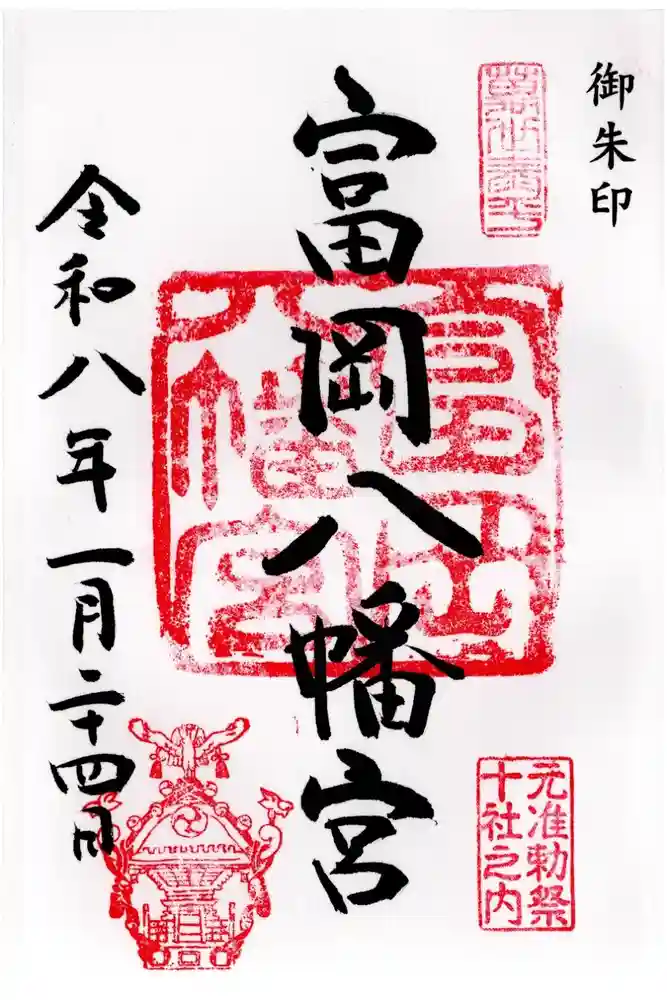 御朱印
富岡八幡宮
富岡八幡宮
元准勅祭
十社之内
令和八年一月二十四日